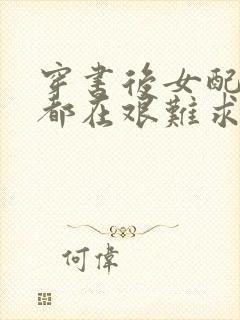 穿書後女配
都在艱難求
何偉